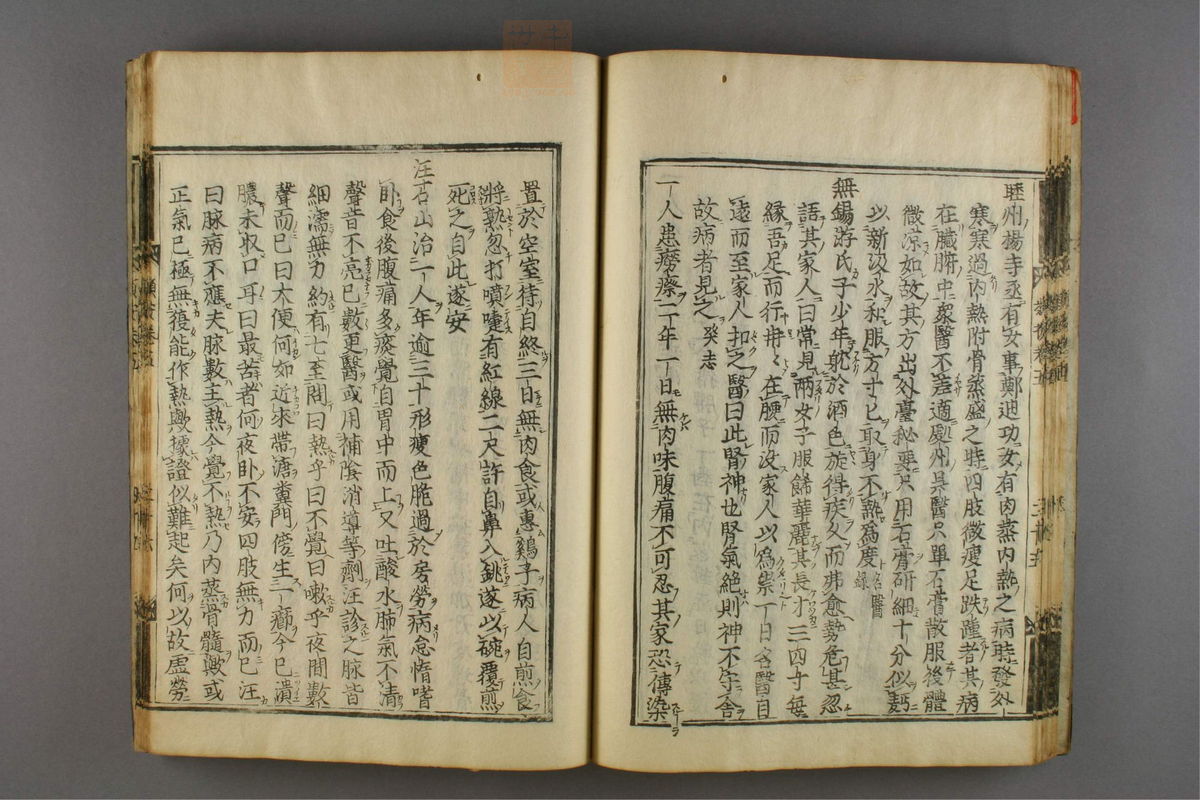 睦州楊寺丞有女事鄭迪功女有肉蒸内熱之病時發外
寒寒過内熱附骨蒸盛之時四肢微瘦足趺踵者其病
在臟腑中衆醫不差適處州呉醫只單石膏散服後體
微凉如故其方出外臺秘要只用石膏研細十分似麪
以新汲水和服方寸匕取身不熱爲度
無錫游氏子少年躭於酒色旋得疾久而弗愈勢危甚忽
語其家人曰常見兩女子服餙華麗其長才三四寸每
縁吾足而行冉々在腰而没家人以為祟一日客醫自
遠而至家人扣之醫曰此腎神也腎氣絶則神不守舎
故病者見之 癸志
一人患癆瘵二年一日無肉味腹痛不可忍其家恐傳染
置於空室待自終三日無肉食或惠鷄子病人自煎食
將熟忽打噴嚔有紅線二尺許自鼻入銚遂以碗覆煎
死之自此遂安
汪石山治一人年逾三十形瘦色脆過於房勞病怠惰嗜
卧食後腹痛多痰覺自胃中而上又吐酸水肺氣不清
聲音不亮已數更醫或用補陰消導等劑汪診之脉皆
細濡無力約有七至問曰熱乎曰不覺曰嗽乎夜間數
聲而已曰大便何如近來帶溏糞門傍生一癤今已潰
膿未収口耳曰最苦者何夜卧不安四肢無力而已汪
曰脉病不應夫脉數主熱今覺不熱乃内蒸骨髓歟或
正氣已極無復能作熱歟據證似難起矣何以故虚勞